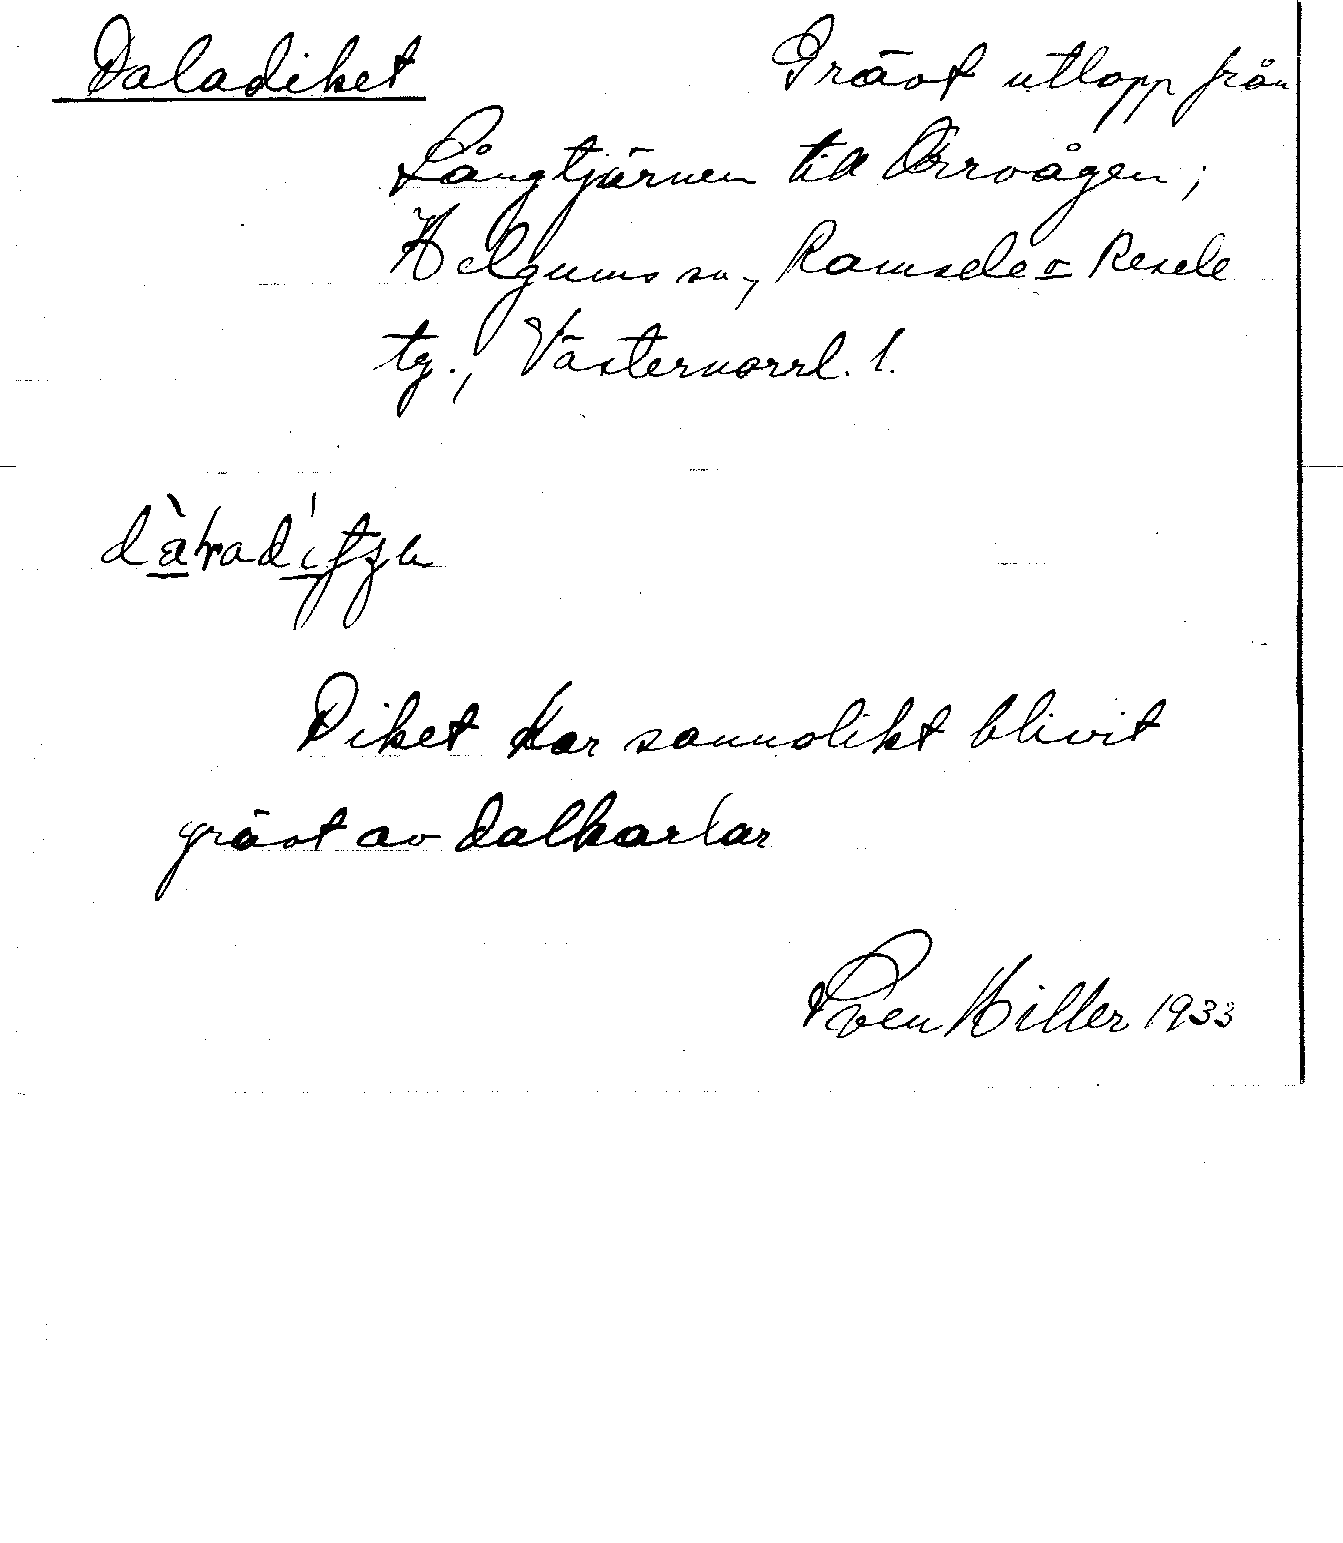 Daladiket Grävt utlopp från
Långtjärnen till Orrvågen;
Helgums sn, Ramsele o Resele
tg., Västernorrl. l.
Diket har sannolikt blivit
grävt av dalkarlar
Sven Hiller 1933